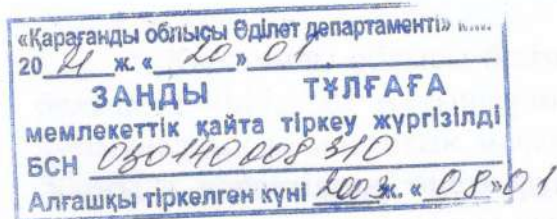 «Қарағанды облысы Әділет департаменті»
20 21 ж. « 20 » 01
ЗАҢДЫ ТҰЛҒАҒА
мемлекеттік қайта тіркеу жүргізілді
БСН 030140008310
Алғашқы тіркелген күні 2003 ж. « 08 » 01